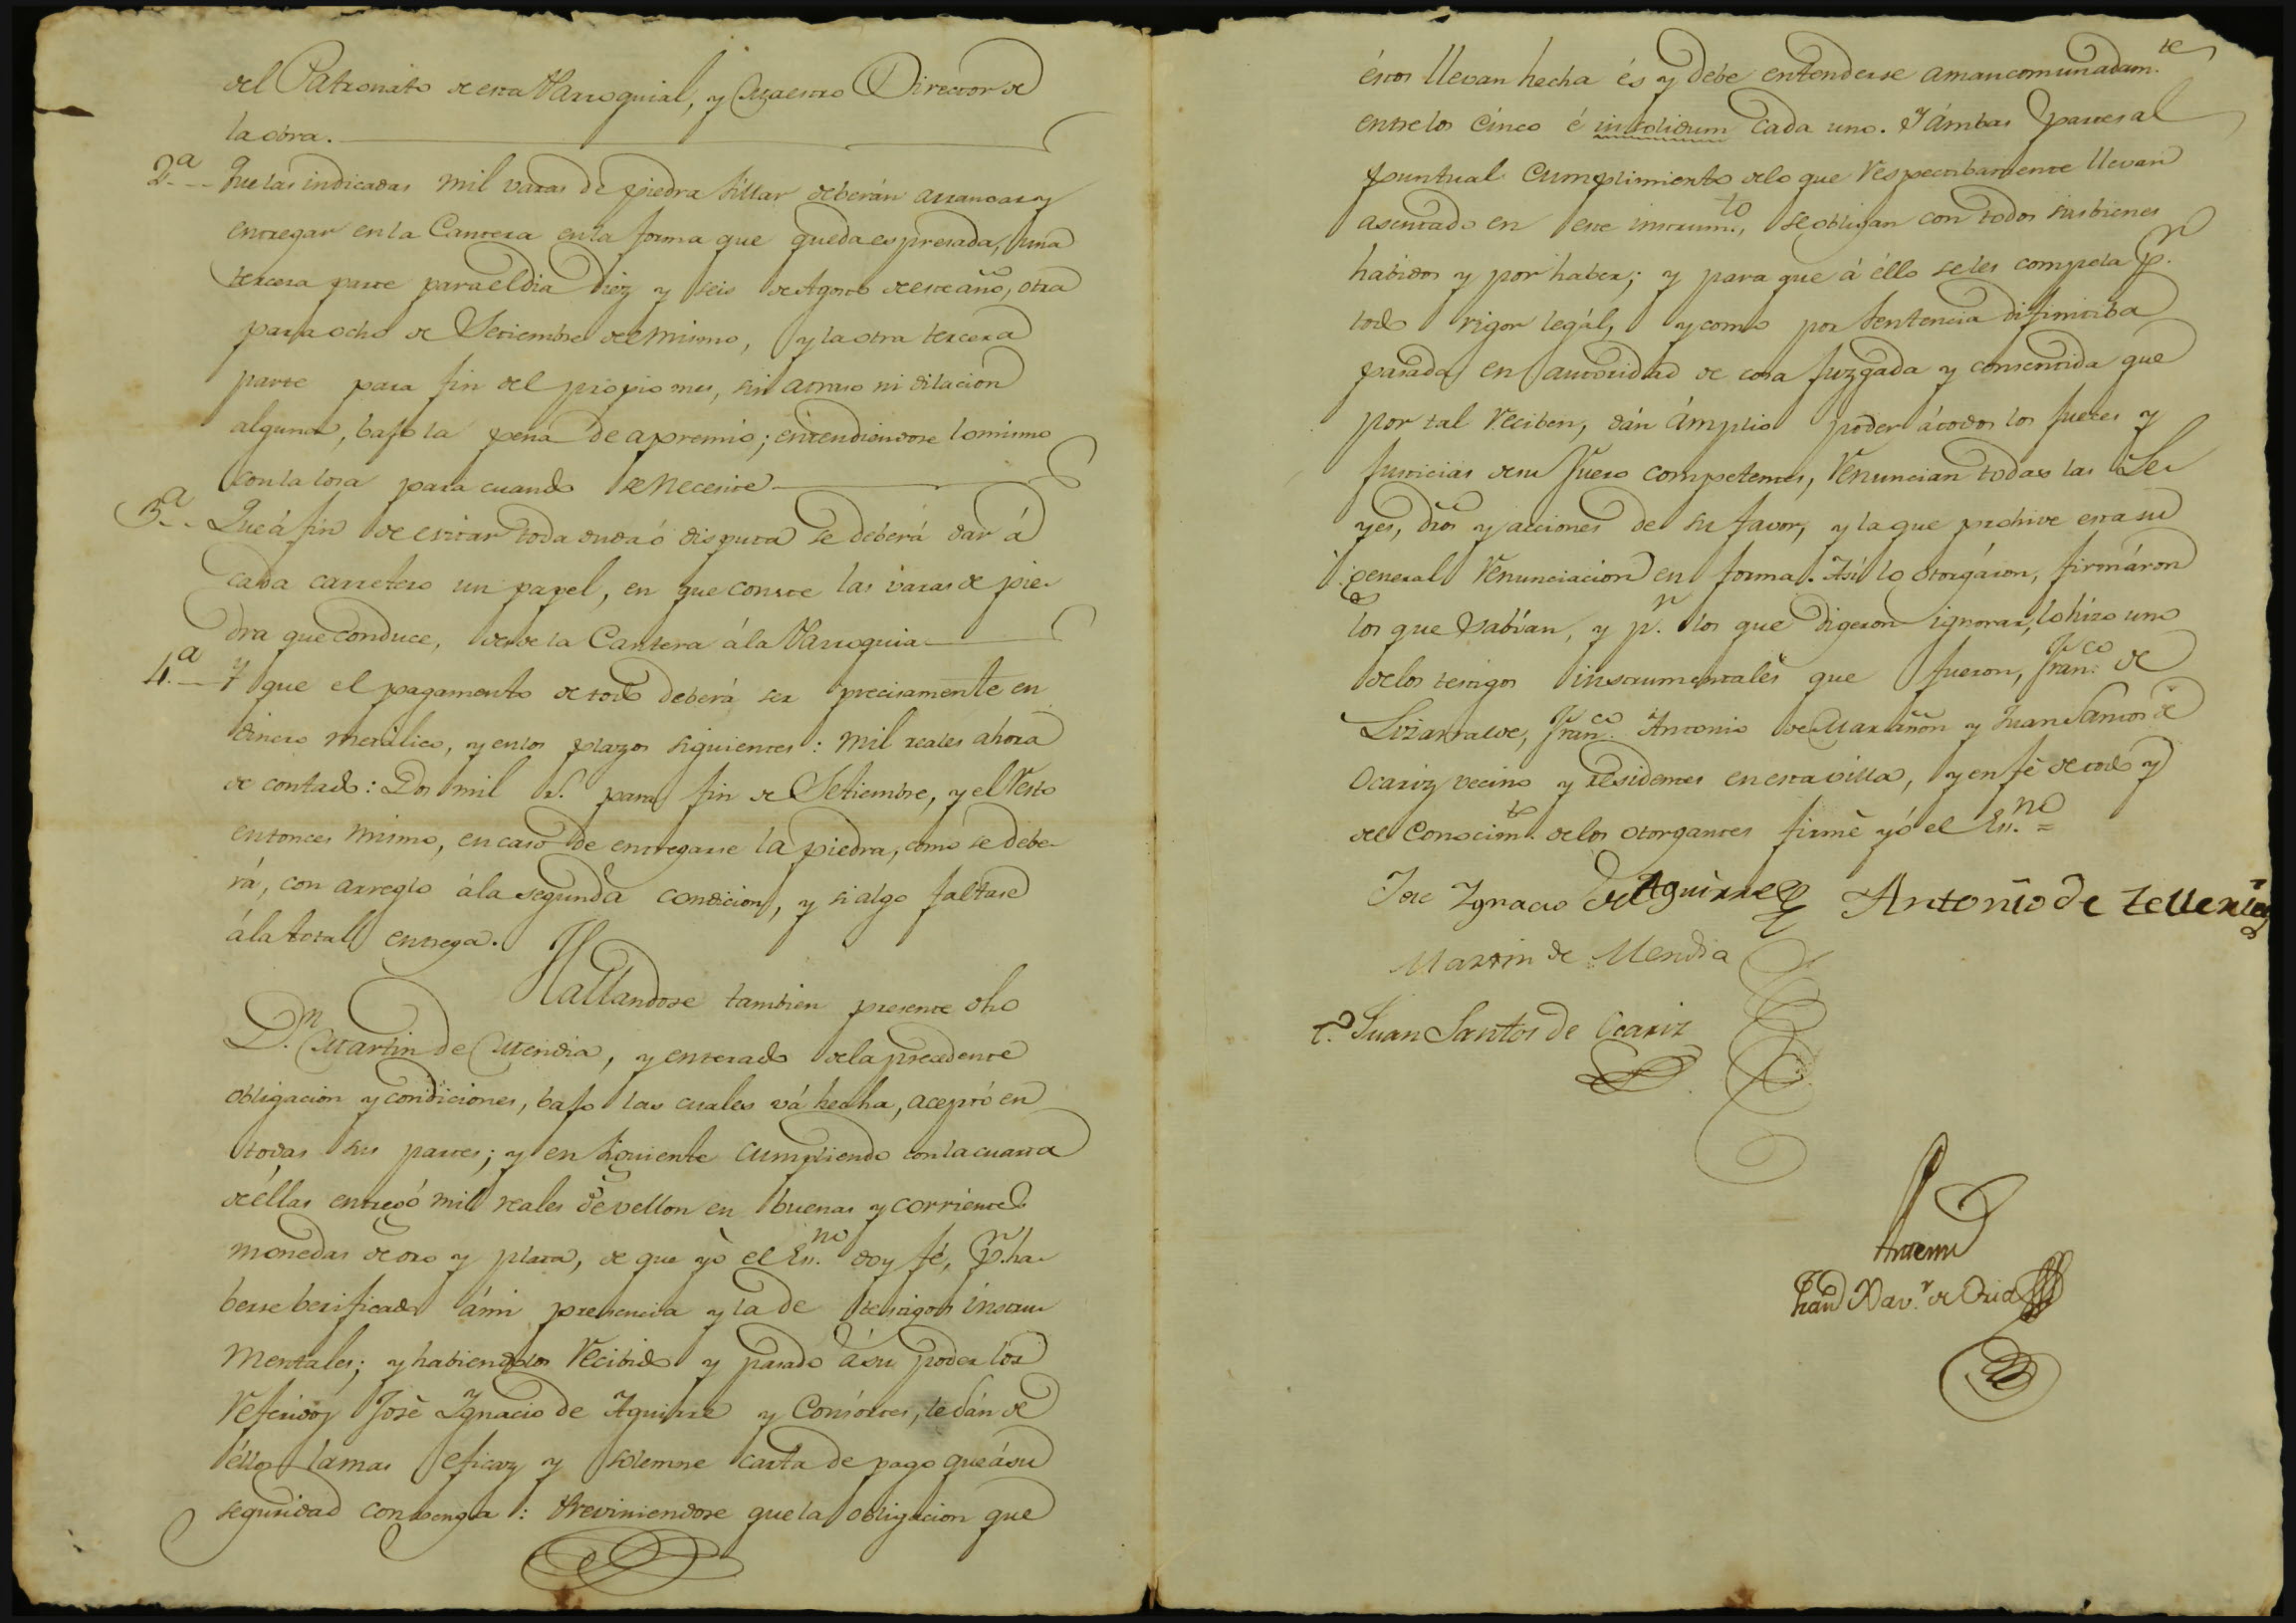 del Patronato de esta Parroquial, y Maestro Director de
la obra.
2.ª Que las indicadas mil varas de piedra sillar deberán arrancar y
entregar en la Cantera en la forma que queda espresada, una
tercera parte para el dia diez y seis de Agosto de este año, otra
para ocho de Setiembre del mismo, y la otra tercera
parte para fin del propio mes, sin atraso ni dilacion
alguna, bajo la pena de apremio; entendiendose lo mismo
con la losa para cuando se necesite
3.ª Que á fin de evitar toda duda ó disputa se deberá dar á
cada carretero un papel, en que conste las varas de pie-
dra que conduce, desde la Cantera á la Parroquia
4.ª Y que el pagamento de todo deberá ser precisamente en
dinero metálico, y en los plazos siguientes: mil reales ahora
de contado: Dos mil r.ˢ para fin de Setiembre, y el resto
entonces mismo, en caso de entregarse la piedra, como se debe-
rá, con arreglo á la segunda condicion, y si algo faltase
á la total entrega.
Hallandose tambien presente dho
D.ⁿ Martin de Mendia, y enterado de la precedente
obligacion y condiciones, bajo las cuales vá hecha, aceptó en
todas sus partes; y en siguiente cumpliendo con la cuarta
de éllas entregó mil reales de vellon en buenas y corrientes
monedas de oro y plata, de que yo el Es.ⁿᵒ doy fé, p.ʳ ha-
berse berificado á mi presencia y la de testigos instru
mentales; y habiendolos recibido y pasado á su poder los
referidos José Ignacio de Aguirre y Consortes, le dán de
éllos la mas eficaz y solemne carta de pago que á su
seguridad convenga: Previniendose que la obligacion que
éstos llevan hecha és y debe entenderse amancomunadam.ᵗᵉ
entre los cinco é insolidum cada uno. Y ámbas partes al
puntual cumplimiento de lo que respectibamente llevan
asentado en este instrum.ᵗᵒ, se obligan con todos sus bienes
habidos y por haber; y para que á éllo se les compela p.ʳ
todo rigor legál, y como por sentencia difinitiba
pasada en autoridad de cosa juzgada y consentida que
por tal reciben, dán ámplio poder á todos los jueces y
justicias de su fuero competentes, renuncian todas las Le-
yes, dros y acciones de su favor, y la que prohive esta su
general renunciacion en forma. Asi lo otorgáron, firmáron
los que sabían, y p.ʳ los que digeron ignorar, lo hizo uno
de los testigos instrumentales que fueron, Fran.ᶜᵒ de
Lizarralde, Fran.ᶜᵒ Antonio de Marañon y Juan Santos de
Ocariz vecino y residentes en esta villa, y en fé de todo y
del Conocim.ᵗᵒ de los otorgantes firmé yó el Es.ⁿᵒ =
Jose Ignacio de Aguirre Antonio de Telleria
Martin de Mendia
t.º Juan Santos de Ocariz
Antemi
Fran Xav.ʳ de Oria